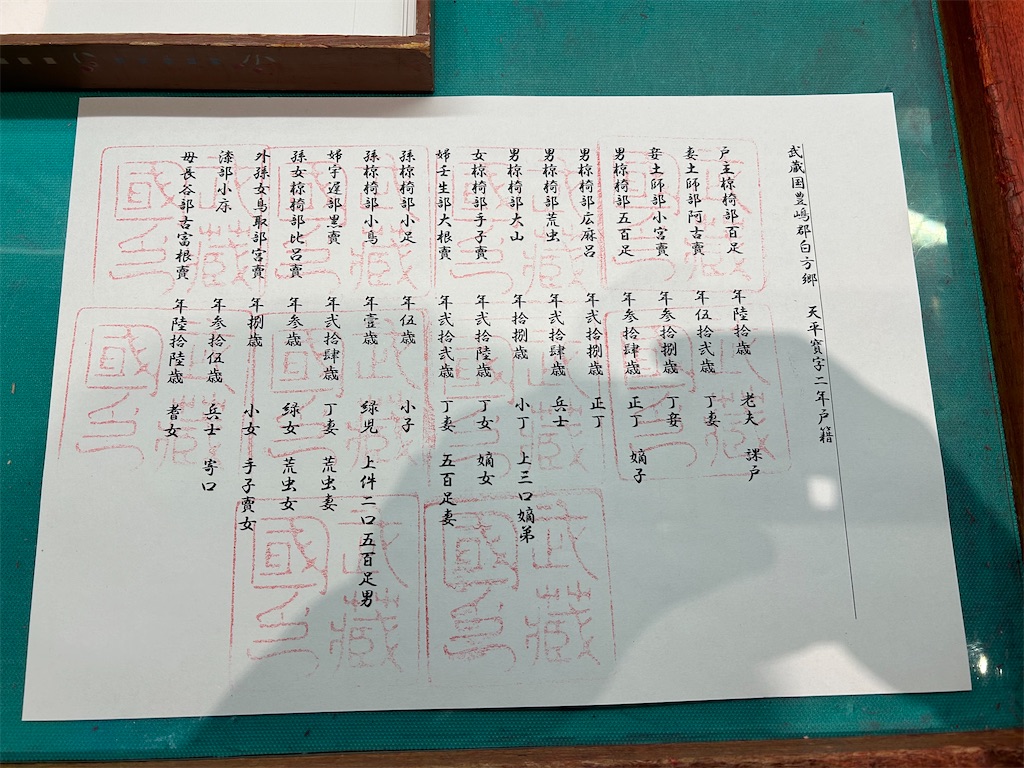 武蔵国豊嶋郡白方郷 天平寳字二年戸籍
戸主椋椅部百足 年陸拾歳 老夫 課戸
妻土師部阿古賣 年伍拾弐歳 丁妻
妾土師部小宮賣 年参拾捌歳 丁妾
男椋椅部五百足 年参拾肆歳 正丁 嫡子
男椋椅部広麻呂 年弐拾捌歳 正丁
男椋椅部荒虫 年弐拾肆歳 兵士
男椋椅部大山 年拾捌歳 小丁 上三口嫡弟
女椋椅部手子賣 年弐拾陸歳 丁女 嫡女
婦壬生部大根賣 年弐拾弐歳 丁妻 五百足妻
孫椋椅部小足 年伍歳 小子
孫椋椅部小鳥 年壹歳 緑児 上件二口五百足男
婦宇遅部黒賣 年弐拾肆歳 丁妻 荒虫妻
孫女椋椅部比呂賣 年参歳 緑女 荒虫女
外孫女鳥取部宮賣 年捌歳 小女 手子賣女
漆部小床 年参拾伍歳 兵士 寄口
母長谷部古富根賣 年陸拾陸歳 耆女
武藏國印
武藏國印
武藏國印
武藏國印
武藏國印
武藏國印
武藏國印
武藏國印
武藏國印
武藏國印